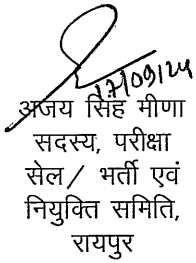 17/09/24
अजय सिंह मीणा
सदस्य, परीक्षा
सेल/ भर्ती एवं
नियुक्ति समिति,
रायपुर